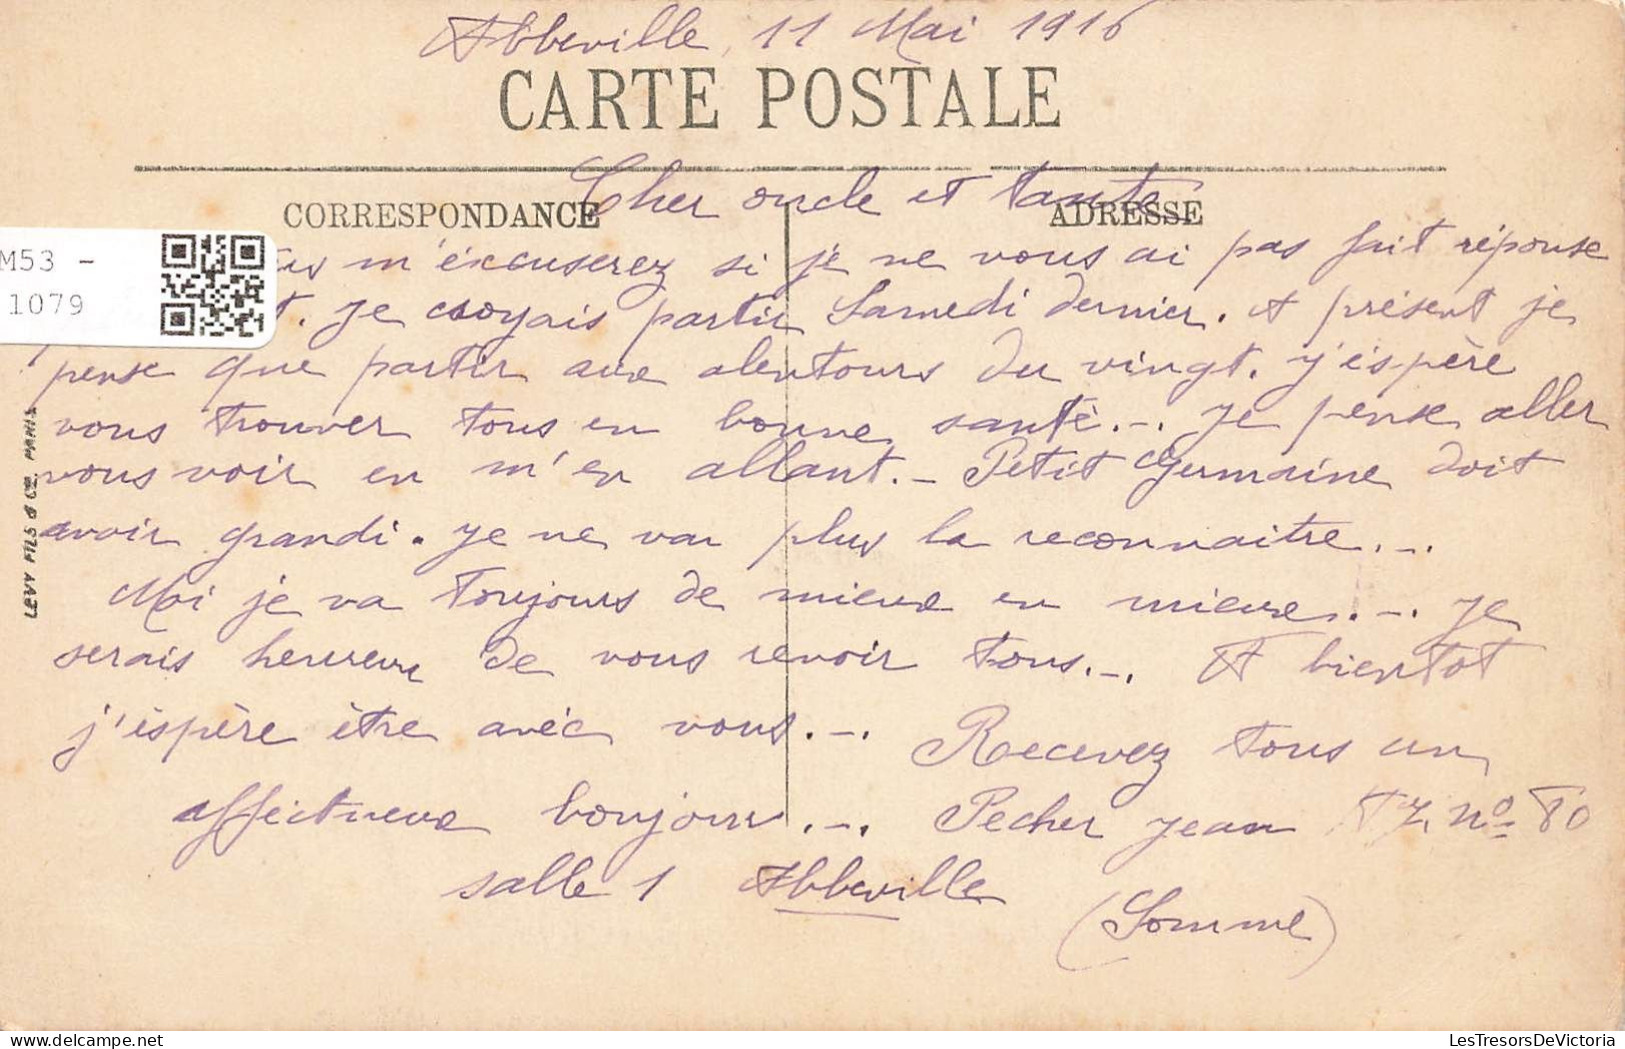 Abbeville, 11 Mai 1916
CARTE POSTALE
Cher oncle et tante
CORRESPONDANCE ADRESSE
m'éxcuserez si je ne vous ai pas fait réponse
M53 -
1079
. Je croyais partir Samedi dernier. A présent je
pense que partir aux alentours du vingt. j'éspère
vous trouver tous en bonne santé.-. Je pense aller
vous voir en m'en allant.- Petit Germaine doit
avoir grandi. Je ne vai plus la reconnaitre.-.
Moi je va toujours de mieux en mieux.-. Je
serais heureux de vous revoir tous.-. A bientot
j'éspère être avéc vous.-. Recevez tous un
afféctueux bonjour.-. Pecher Jean nº 80
salle 1 Abbeville (Somme)
LEVY FILS & Cie. PARIS
LesTresorsDeVictoria
delcampe.net